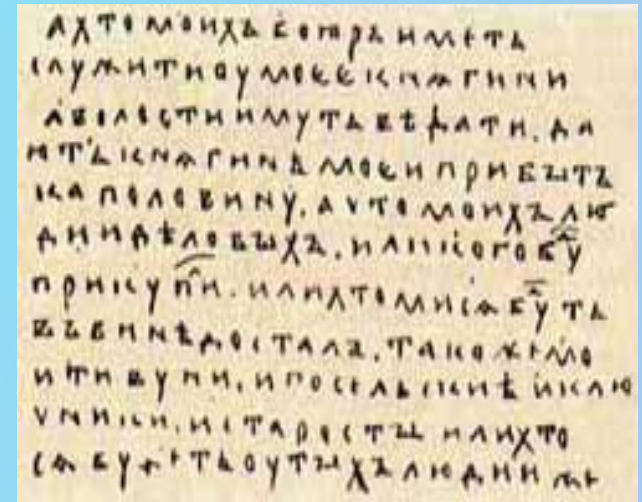 АХТОМОИХЪ БОꙖРЪ ИМЕТЬ
СЛУЖИТИОУМОЕЕКНѦГИНИ
АВОЛОСТИИМУТЬВѢДАТИ. ДА
ЮТЬКНѦГИНѢМОЕИПРИБЫТЪ
КАПОЛОВИНУ. АЧТОМОИХЪЛЮ
ДИИДѢЛОВЫХЪ. ИЛИКОГОБУⷣ
ПРИКУПИⷧ. ИЛИХТОМИСѦБУⷣТЬ
ВЪВИНѢДОСТАЛЪ. ТАКОЖЕМО
ИТИВУНИ. ИПОСЕЛЬСКИѢИКЛЮ
ЧНИКИ. ИСТАРОСТЫ ИЛИХТО
СѦБУДЕТЬОУТЫХЪЛЮДИИЖЕ